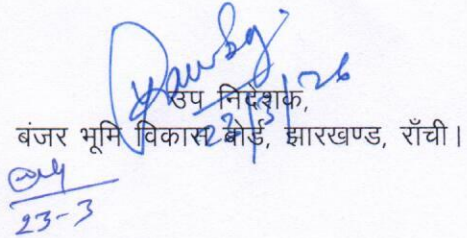 23/3/26
उप निदेशक,
बंजर भूमि विकास बोर्ड, झारखण्ड, राँची।
23-3